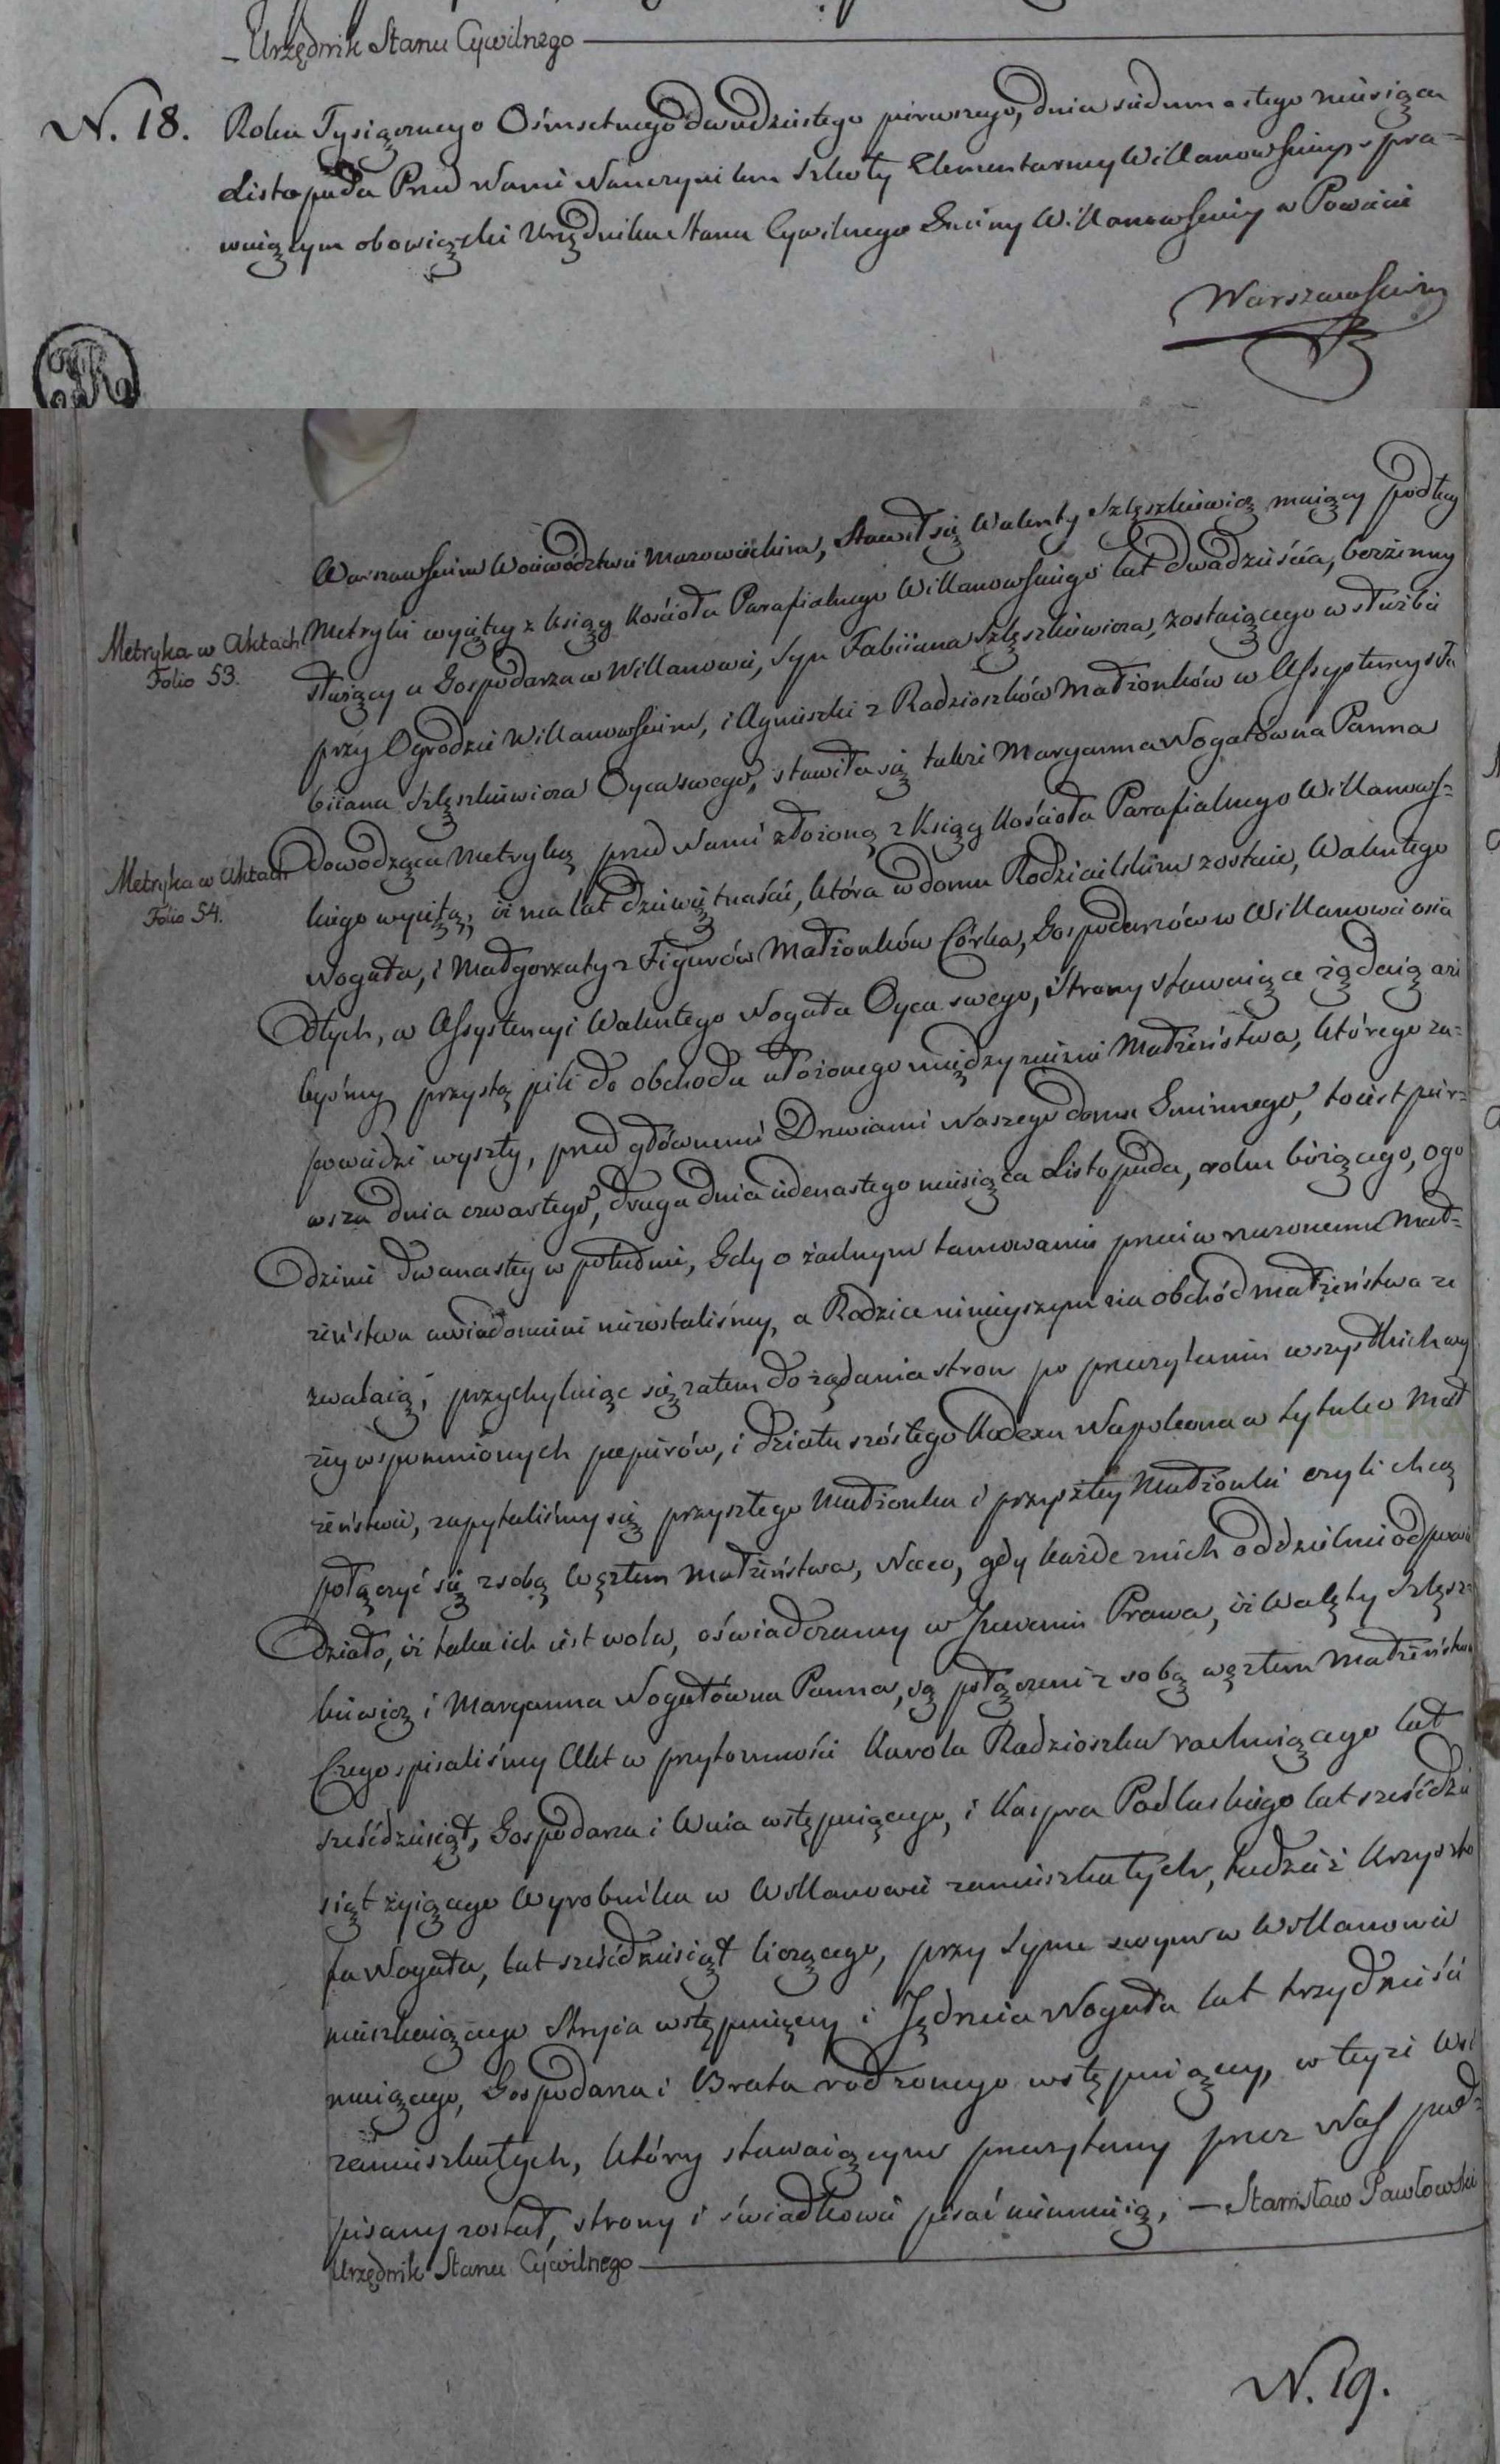 Urzędnik Stanu Cywilnego
N. 18. Roku Tysiącznego Ośmsetnego dwudziestego pierwszego, dnia siedmnastego miesiąca
Listopada Przed Nami Nauczycielem Szkoły Elementarney Willanowskiey, spra=
wuiącym obowiązki Urzędnika Stanu Cywilnego Gminy Willanowskiey w Powiecie
Warszawskim
Warszawskim Woiewództwie Mazowieckim, Stawił się Walenty Szlęszkiewicz maiący podług
Metryka w Aktach
Folio 53.
Metryki wyiętey z księgi Kościoła Parafialnego Willanowskiego lat dwadzieścia, bezżenny
służący u Gospodarza w Willanowie, Syn Fabiiana Szlęszkiewicza, zostaiącego w służbie
przy Ogrodzie Willanowskim, i Agnieszki z Radzioszków Małżonków w Assystencyi Fa
biiana Szlęszkiewicza Oyca swego, stawiła się także Maryanna Nogałówna Panna
Metryka w Aktach
Folio 54.
Dowodząca Metryką przed Nami złożoną z Księgi Kościoła Parafialnego Willanows=
kiego wyiętą, iż ma lat dziewiętnaście, która w domu Rodzicielskim zostaie, Walentego
Nogała, i Małgorzaty z Figurów Małżonków Córka, Gospodarzów w Willanowie osia
dłych, w Assystencyi Walentego Nogała Oyca swego, Strony stawaiące żądaią aże
byśmy przystąpili do obchodu ułożonego między niemi Małżeństwa, którego za=
powiedzi wyszły, przed głównemi Drzwiami Naszego domu Gminnego, to iest pier=
wsza dnia czwartego, druga dnia iedenastego miesiąca Listopada, roku bieżącego, o go
dzinie dwunastey w południe, Gdy o żadnym tamowaniu przeciw rzeczonemu Mał=
żeństwu uwiadomieni niezostaliśmy, a Rodzice ninieyszym na obchód małżeństwa ze
zwalaią, przychylaiąc się zatem do żądania stron po przeczytaniu wszystkich wy
żey wspomnionych papierów, i działu szóstego Kodexu Napoleona w tytule o Mał
żeństwie, zapytaliśmy się przyszłego Małżonka i przyszłey Małżonki czyli chcą
połączyć się z sobą węzłem Małżeństwa, Na co, gdy każde z nich oddzielnie odpowie
działo, iż taka ich iest wola, oświadczamy w Imieniu Prawa, iż Walęty Szlęsz=
kiewicz i Maryanna Nogałówna Panna, są połączeni z sobą węzłem Małżeństwa
Czego spisaliśmy Akt w przytomności Karola Radzioszka rachuiącego lat
sześćdziesiąt, Gospodarza i Wuia wstępuiącego, i Kacpra Podluskiego lat sześćdzie
siąt żyiącego Wyrobnika w Willanowie zamieszkałych, tudzież Krzyszto
fa Nogała, lat sześćdziesiąt liczącego, przy Synie swym w Willanowie
mieszkaiącego Stryia wstępuiącey i Jędrzeia Nogała lat trzydzieści
maiącego, Gospodarza i Brata rodzonego wstępuiącey, w teyże Wsi
zamieszkałych, który stawaiącym przeczytany przez Nas pod=
pisany został, strony i świadkowie pisać nieumieią, — Stanisław Pawłowski
Urzędnik Stanu Cywilnego
N. 19.